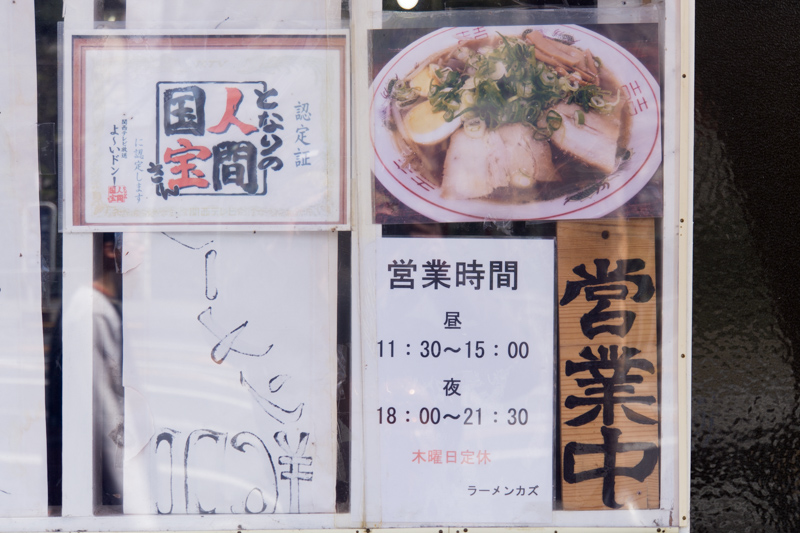 認定証
となりの
人間
国宝
さん
に認定します
関西テレビ放送
よ〜いドン!
営業時間
昼
11:30〜15:00
夜
18:00〜21:30
木曜日定休
ラーメンカズ
営業中